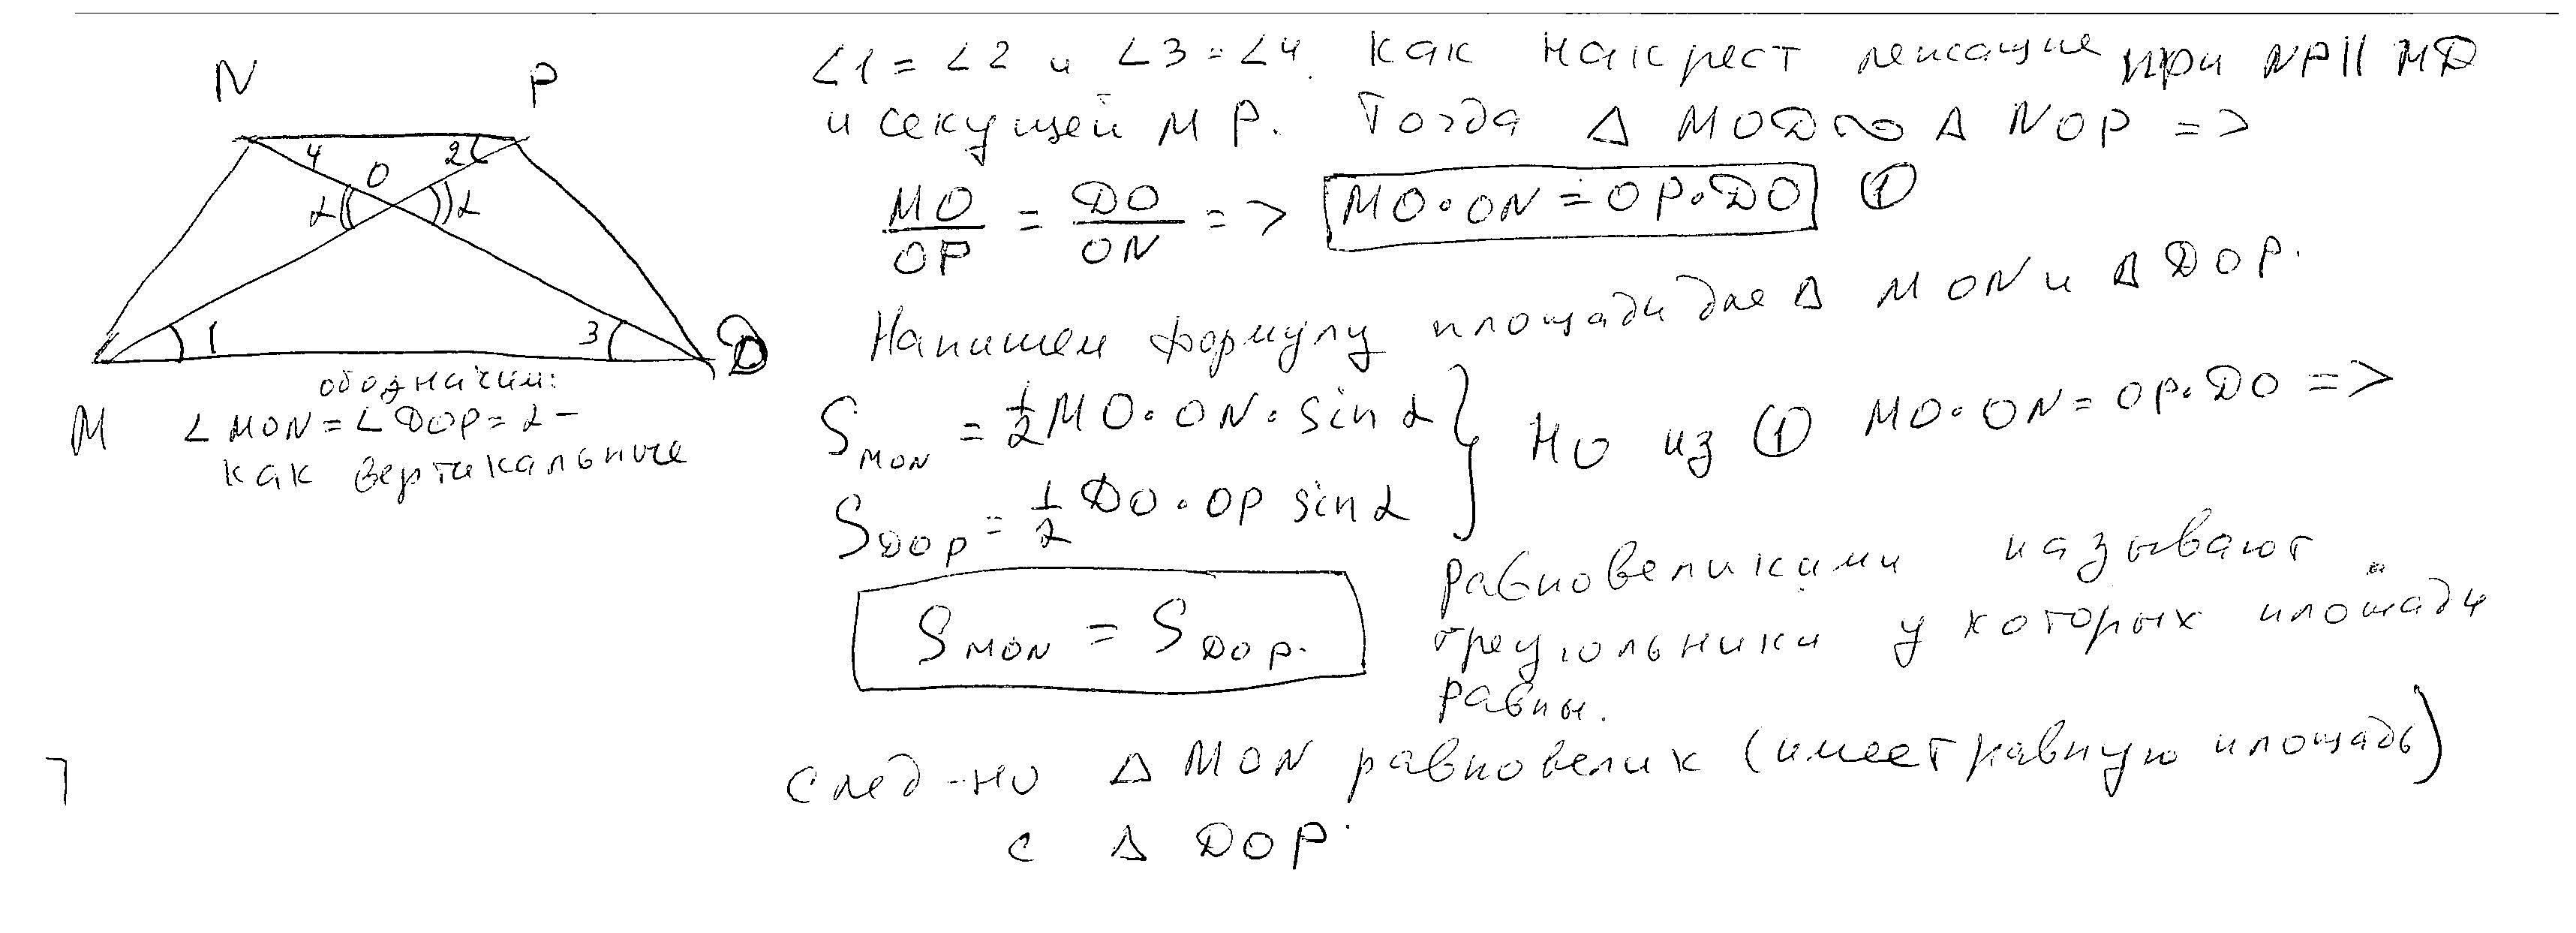 N P
4 2
O
α α
1 3
M D
обозначим:
∠MON = ∠DOP = α –
как вертикальные
∠1 = ∠2 и ∠3 = ∠4 как накрест лежащие при NP || MD
и секущей MP. Тогда Δ MOD ∾ Δ NOP =>
MO/OP = DO/ON => MO·ON = OP·DO ①
Напишем формулу площади для Δ MON и Δ DOP.
S_MON = 1/2 MO·ON·sin α
S_DOP = 1/2 DO·OP sin α
} Но из ① MO·ON = OP·DO =>
S_MON = S_DOP.
равновеликими называют
треугольники у которых площади
равны.
след-но Δ MON равновелик (имеет равную площадь)
с Δ DOP.